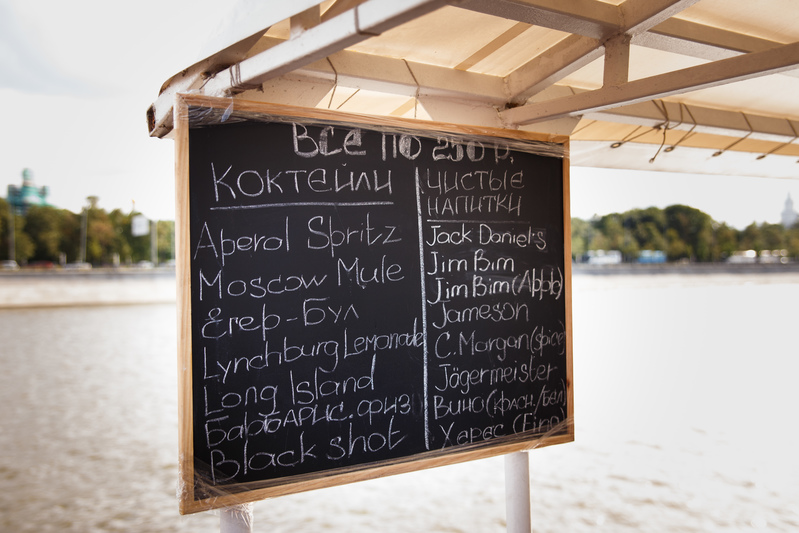 ВСЕ ПО 250 Р.
КОКТЕЙЛИ
Aperol Spritz
Moscow Mule
Егер-Бул
Lynchburg Lemonade
Long Island
БарбАРИС.физ
Black shot
ЧИСТЫЕ
НАПИТКИ
Jack Daniel's
Jim Bim
Jim Bim (Appl)
Jameson
C. Morgan (spice)
Jägermeister
Вино (красн./Бел)
Херес (Fino)